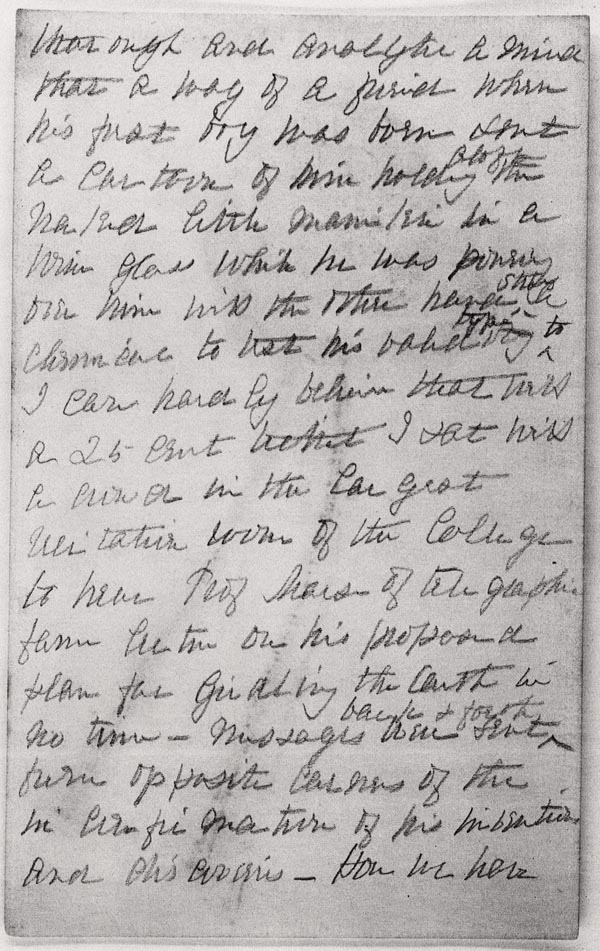 thorough and analytic a mind
that a wag of a friend when
his first boy was born sent
a cartoon of him holding aloft the
naked little manikin in a
wine glass while he was pouring
over him with the other hand some
chemical to test his validity to
I can hardly believe that with
a 25 cent ticket I sat with
a crowd in the largest
recitation room of the College
to hear Prof Morse of telegraphic
fame lecture on his proposed
plan for girdling the earth in
no time – Messages were sent back & forth
from opposite corners of the
in confirmation of his invention
and discoveries – How we have